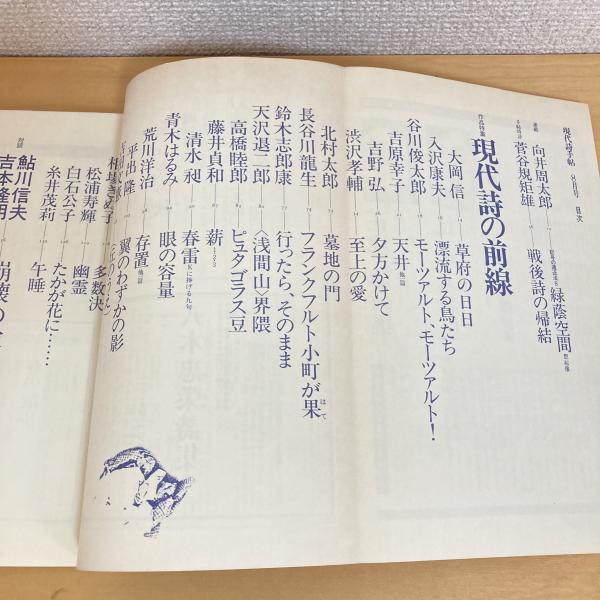 現代詩手帖 8月号 目次
連載 向井周太郎 緑蔭空間
手帖時評 菅谷規矩雄 戦後詩の帰結
作品特集 現代詩の前線
大岡信 草府の日日
入沢康夫 漂流する鳥たち
谷川俊太郎 モーツァルト、モーツァルト!
吉原幸子 天井 他二篇
吉野弘 夕方かけて
渋沢孝輔 至上の愛
北村太郎 墓地の門
長谷川龍生 フランクフルト小町が果はて
鈴木志郎康 行ったら、そのまま
天沢退二郎 〈浅間山〉界隈
高橋睦郎 ピュタゴラス豆
藤井貞和 薪
清水昶 春雷 Kに捧げる九句
青木はるみ 眼の容量
荒川洋治 存置 他一篇
平出隆 翼のわずかの影
相場きぬ子 多数決
松浦寿輝 幽霊
白石公子 たかが花に……
糸井茂莉 午睡
対談
鮎川信夫
吉本隆明 崩壊の